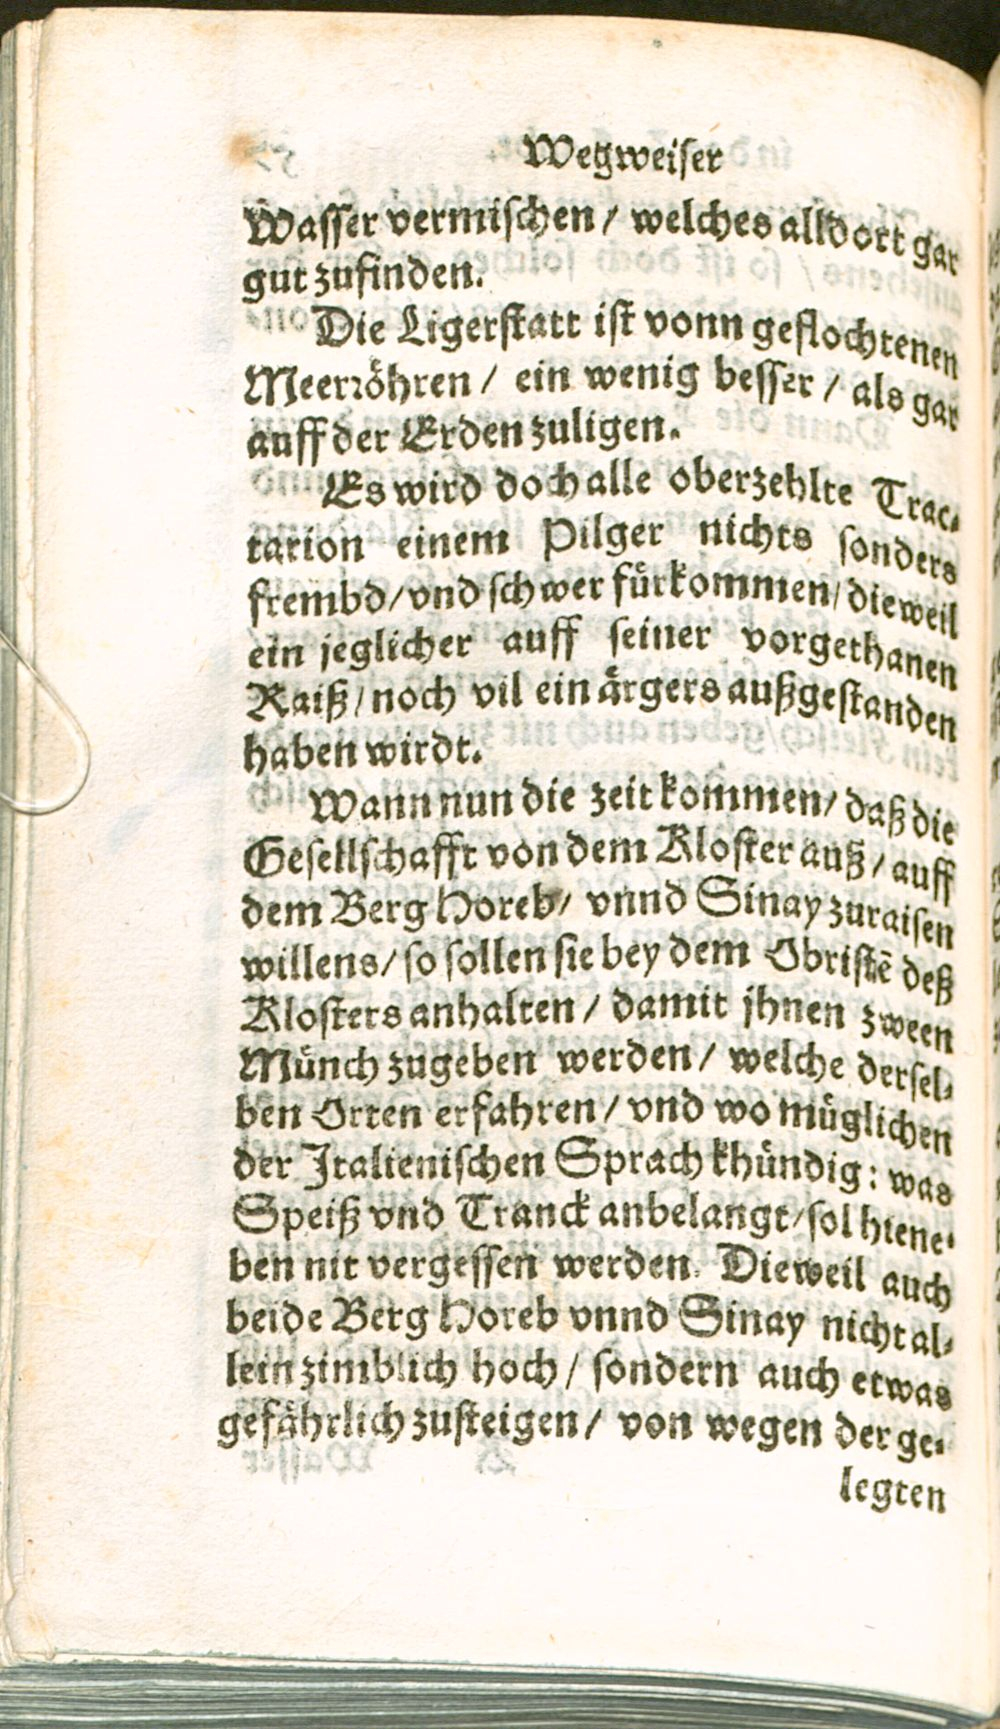 Wegweiser
Wasser vermischen / welches alldort gar
gut zufinden.
Die Ligerstatt ist vonn geflochtenen
Meerröhren / ein wenig besser / als gar
auff der Erden zuligen.
Es wird doch alle oberzehlte Trac-
tation einem Pilger nichts sonders
frembd / vnd schwer fürkommen / dieweil
ein jeglicher auff seiner vorgethanen
Raiß / noch vil ein ärgers außgestanden
haben wirdt.
Wann nun die zeit kommen / daß die
Gesellschafft von dem Kloster auß / auff
dem Berg Horeb / vnnd Sinay zuraisen
willens / so sollen sie bey dem Obristē deß
Klosters anhalten / damit jhnen zween
Münch zugeben werden / welche dersel-
ben Orten erfahren / vnd wo müglichen
der Italienischen Sprach khündig: was
Speiß vnd Tranck anbelangt / sol hiene-
ben nit vergessen werden. Dieweil auch
beide Berg Horeb vnnd Sinay nicht al-
lein zimblich hoch / sondern auch etwas
gefährlich zusteigen / von wegen der ge-
legten